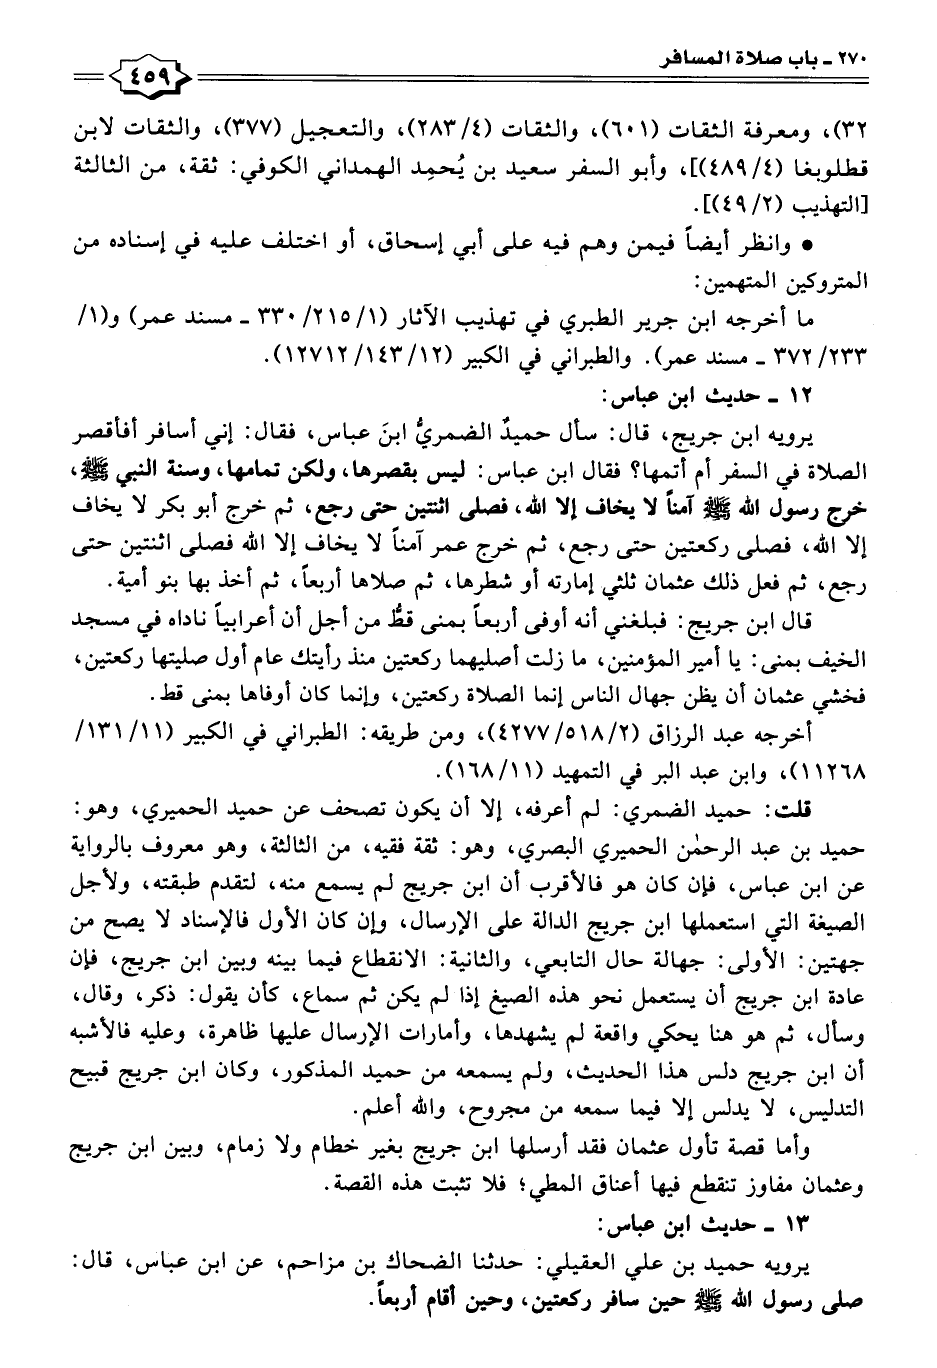 ٢٧٠ ـ باب صلاة المسافر
٤٥٩
٣٢)، ومعرفة الثقات (٦٠١)، والثقات (٢٨٣/٤)، والتعجيل (٣٧٧)، والثقات لابن
قطلوبغا (٤٨٩/٤)]، وأبو السفر سعيد بن يُحمِد الهمداني الكوفي: ثقة، من الثالثة
[التهذيب (٤٩/٢)].
• وانظر أيضاً فيمن وهم فيه على أبي إسحاق، أو اختلف عليه في إسناده من
المتروكين المتهمين:
ما أخرجه ابن جرير الطبري في تهذيب الآثار (٣٣٠/٢١٥/١ ـ مسند عمر) و(١/
٣٧٢/٢٣٣ ـ مسند عمر). والطبراني في الكبير (١٢٧١٢/١٤٣/١٢).
١٢ ـ حديث ابن عباس:
يرويه ابن جريج، قال: سأل حميدٌ الضمريُّ ابنَ عباس، فقال: إني أسافر أفأقصر
الصلاة في السفر أم أتمها؟ فقال ابن عباس: ليس بقصرها، ولكن تمامها، وسنة النبي ﷺ،
خرج رسول الله ﷺ آمناً لا يخاف إلا الله، فصلى اثنتين حتى رجع، ثم خرج أبو بكر لا يخاف
إلا الله، فصلى ركعتين حتى رجع، ثم خرج عمر آمناً لا يخاف إلا الله فصلى اثنتين حتى
رجع، ثم فعل ذلك عثمان ثلثي إمارته أو شطرها، ثم صلاها أربعاً، ثم أخذ بها بنو أمية.
قال ابن جريج: فبلغني أنه أوفى أربعاً بمنى قطُّ من أجل أن أعرابياً ناداه في مسجد
الخيف بمنى: يا أمير المؤمنين، ما زلت أصليهما ركعتين منذ رأيتك عام أول صليتها ركعتين،
فخشي عثمان أن يظن جهال الناس إنما الصلاة ركعتين، وإنما كان أوفاها بمنى قط.
أخرجه عبد الرزاق (٤٢٧٧/٥١٨/٢)، ومن طريقه: الطبراني في الكبير (١٣١/١١/
١١٢٦٨)، وابن عبد البر في التمهيد (١٦٨/١١).
قلت: حميد الضمري: لم أعرفه، إلا أن يكون تصحف عن حميد الحميري، وهو:
حميد بن عبد الرحمٰن الحميري البصري، وهو: ثقة فقيه، من الثالثة، وهو معروف بالرواية
عن ابن عباس، فإن كان هو فالأقرب أن ابن جريج لم يسمع منه، لتقدم طبقته، ولأجل
الصيغة التي استعملها ابن جريج الدالة على الإرسال، وإن كان الأول فالإسناد لا يصح من
جهتين: الأولى: جهالة حال التابعي، والثانية: الانقطاع فيما بينه وبين ابن جريج، فإن
عادة ابن جريج أن يستعمل نحو هذه الصيغ إذا لم يكن ثم سماع، كأن يقول: ذكر، وقال،
وسأل، ثم هو هنا يحكي واقعة لم يشهدها، وأمارات الإرسال عليها ظاهرة، وعليه فالأشبه
أن ابن جريج دلس هذا الحديث، ولم يسمعه من حميد المذكور، وكان ابن جريج قبيح
التدليس، لا يدلس إلا فيما سمعه من مجروح، والله أعلم.
وأما قصة تأول عثمان فقد أرسلها ابن جريج بغير خطام ولا زمام، وبين ابن جريج
وعثمان مفاوز تنقطع فيها أعناق المطي؛ فلا تثبت هذه القصة.
١٣ ـ حديث ابن عباس:
يرويه حميد بن علي العقيلي: حدثنا الضحاك بن مزاحم، عن ابن عباس، قال:
صلى رسول الله ﷺ حين سافر ركعتين، وحين أقام أربعاً.